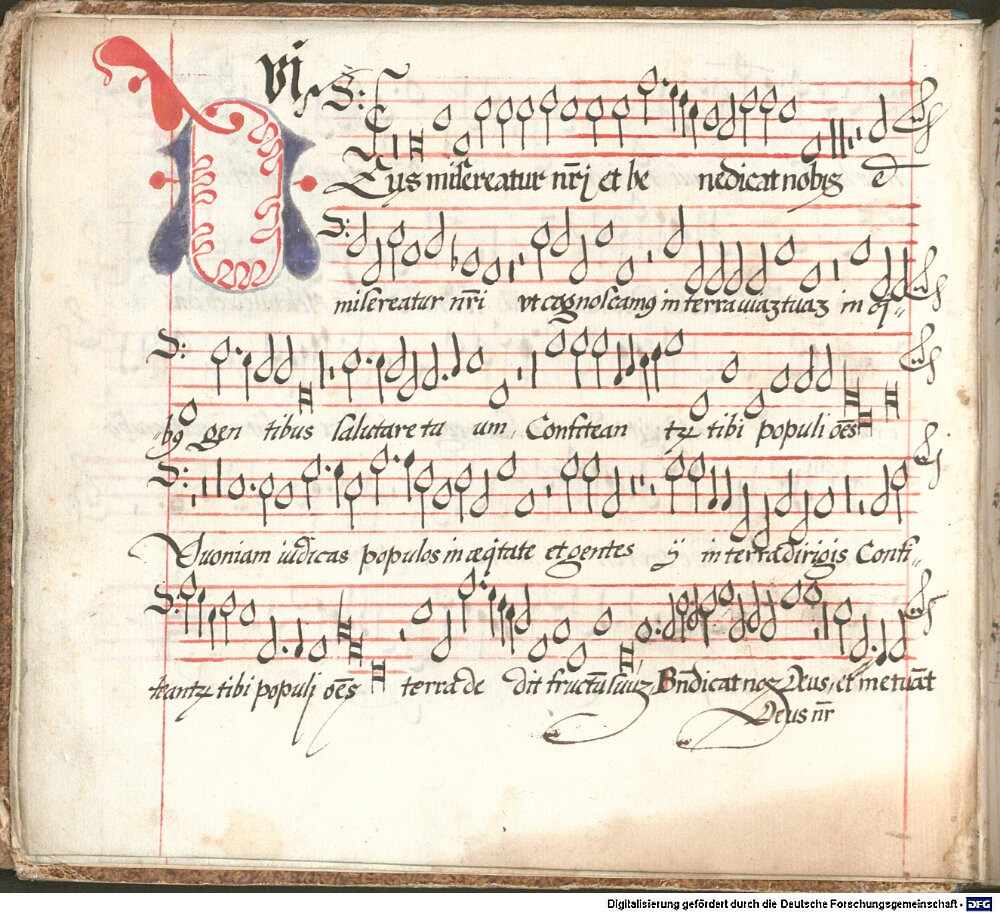 vi
Eus misereatur nr̄i et be nedicat nobis et
misereatur nr̄i vt cognoscamꝰ in terra viaꝫ tuaꝫ in oī-
bꝰ gentibus salutare tuum. Confitean tꝝ tibi populi oēs
Quoniam iudicas populos in æq̄tate et gentes ij in terra dirigis Confi-
teantꝝ tibi populi oēs terra dedit fructū suuꝫ, Bn̄dicat nos Deus, et metuāt
Deus nr̄
Digitalisierung gefördert durch die Deutsche Forschungsgemeinschaft - DFG